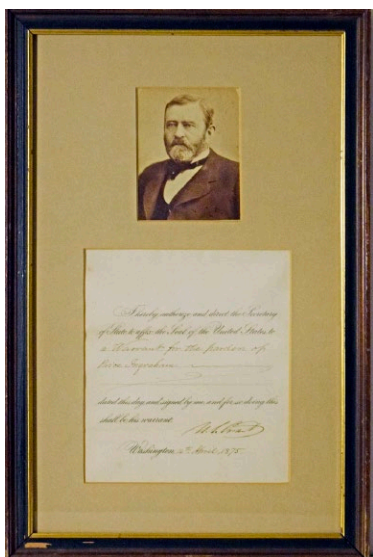 I hereby authorize and direct the Secretary
of State to affix the Seal of the United States, to
a Warrant for the pardon of
dated this day and signed by me, and for so doing this
shall be his warrant.
U.S. Grant
Washington, April 1875